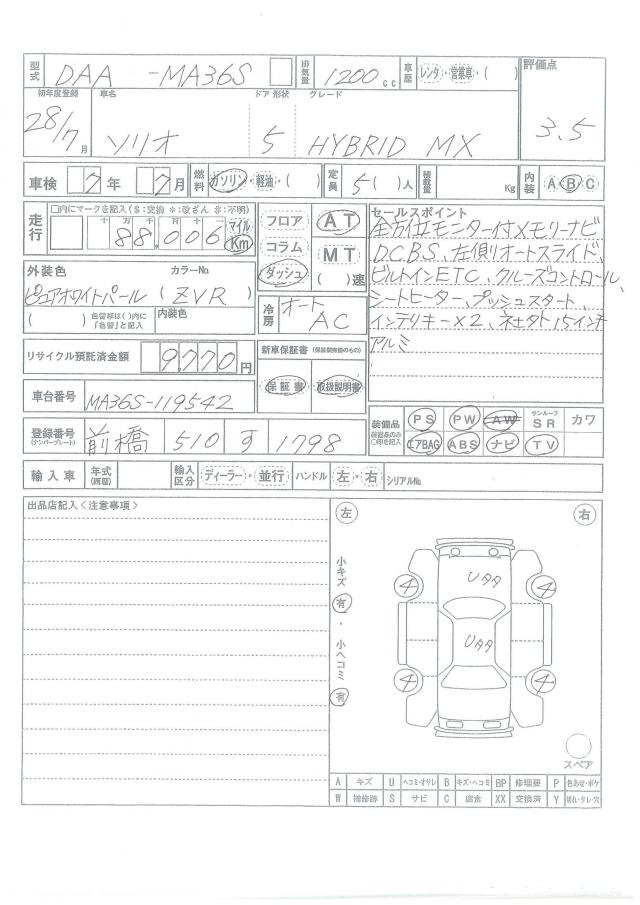 型式 DAA -MA36S 排気量 1200 cc 車歴 レンタ・営業車・( ) 評価点
初年度登録 車名 ドア 形状 グレード
28/7月 ソリオ 5 HYBRID MX 3.5
車検 7年 7月 燃料 ガソリン・軽油・( ) 定員 5( )人 積載量 Kg 内装 A B C
走行 □内にマークを記入($:交換 *:改ざん #:不明)
十 万 千 百 88,006 マイル Km
フロア
コラム
ダッシュ
AT
MT
( )速
セールスポイント
全方位モニター付メモリーナビ
D.C.B.S、左側オートスライド、
ビルトインETC、クルーズコントロール、
シートヒーター、プッシュスタート、
インテリキー×2、ネ土タト15インチ
アルミ
外装色 カラーNo.
ピュアホワイトパール (ZVR)
( ) 色替車は( )内に「色替」と記入 内装色
冷房 オート AC
リサイクル預託済金額 9,770円
新車保証書 (保証期間後のもの)
保証書 取扱説明書
車台番号 MA36S-119542
登録番号 (ナンバープレート) 前橋 510 す 1798
装備品 装備品のみ○印を記入 PS PW AW サンルーフ SR カワ
エアBAG ABS ナビ TV
輸入車 年式 (西暦) 輸入区分 ディーラー・並行 ハンドル 左・右 シリアルNo.
出品店記入〈注意事項〉
左 右
小キズ 有・小ヘコミ 有
Uタタ
Uタタ
4 4
4 4
スペア
A キズ U ヘコミ・オサレ B キズ・ヘコミ BP 修理要 P 色あせ・ボケ
W 補修跡 S サビ C 腐食 XX 交換済 Y 切れ・タレ・穴